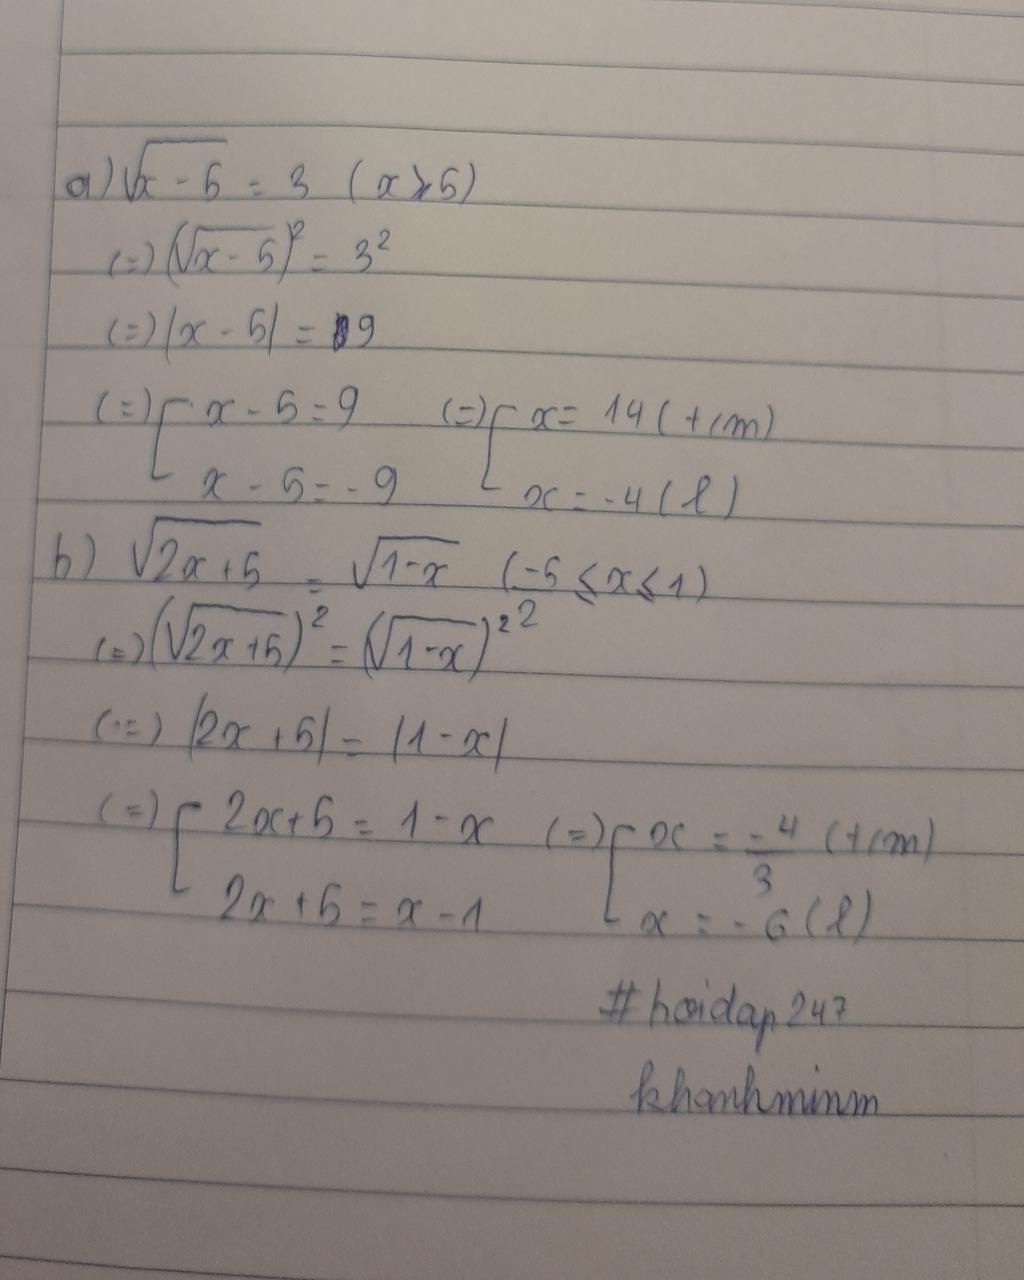 a) √(x - 5) = 3 (x ≥ 5)
(=) (√(x - 5))² = 3²
(=) |x - 5| = 9
(=) [ x - 5 = 9 (=) [ x = 14 (t/m)
x - 5 = -9 x = -4 (l)
b) √(2x+5) = √(1-x) (-5 ≤ x ≤ 1)
(=) (√(2x+5))² = (√(1-x))² ²
(=) |2x+5| = |1-x|
(=) [ 2x+5 = 1-x (=) [ x = -4/3 (t/m)
2x+5 = x-1 x = -6 (l)
#hoidap247
khanhminm